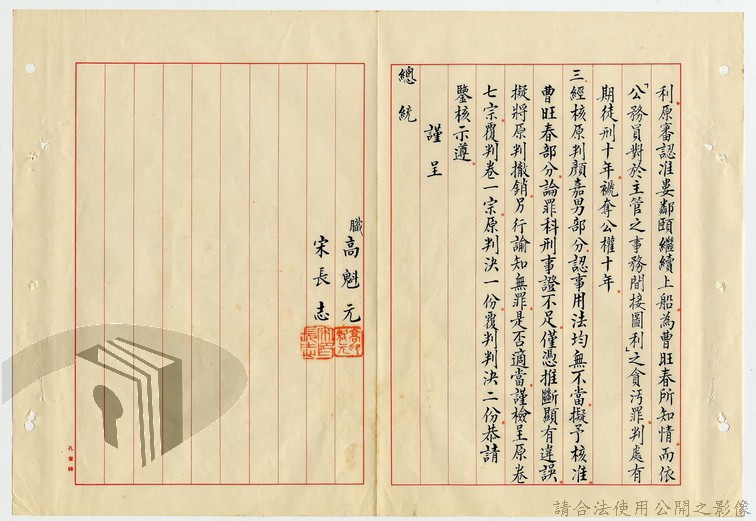 利原審認准婁鄰頤繼續上船為曹旺春所知情而依
「公務員對於主管之事務間接圖利」之貪污罪判處有
期徒刑十年褫奪公權十年
三經核原判顏嘉男部分認事用法均無不當擬予核准
曹旺春部分論罪科刑事證不足僅憑推斷顯有違誤
擬將原判撤銷另行諭知無罪是否適當謹檢呈原卷
七宗覆判卷一宗原判決一份覆判判決二份恭請
鑒核示遵
謹呈
總統
職高魁元
宋長志
請合法使用公開之影像